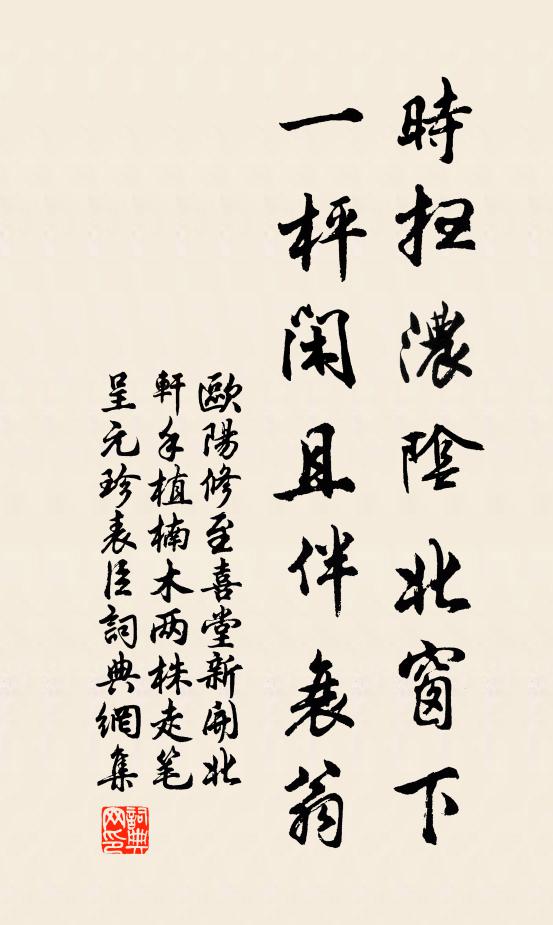 時掃濃陰北窗下
一枰閑且伴衰翁
歐陽修至喜堂新開北
軒手植楠木两株走笔
呈元珍表臣詞典網集
詞典
网印